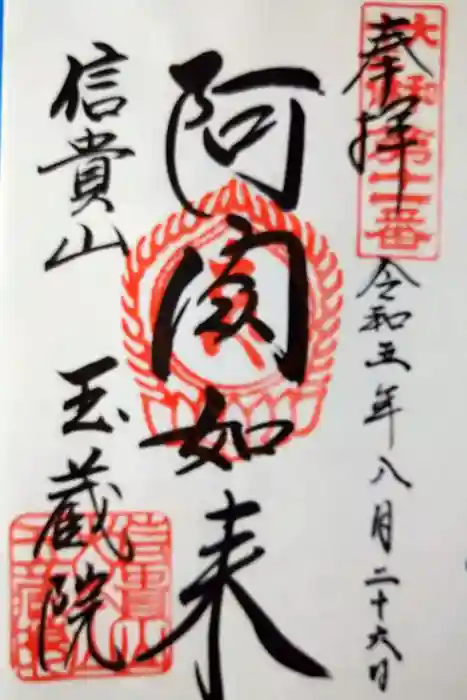 奉拝
大和第十一番
令和五年八月二十六日
阿閦如来
信貴山
玉蔵院